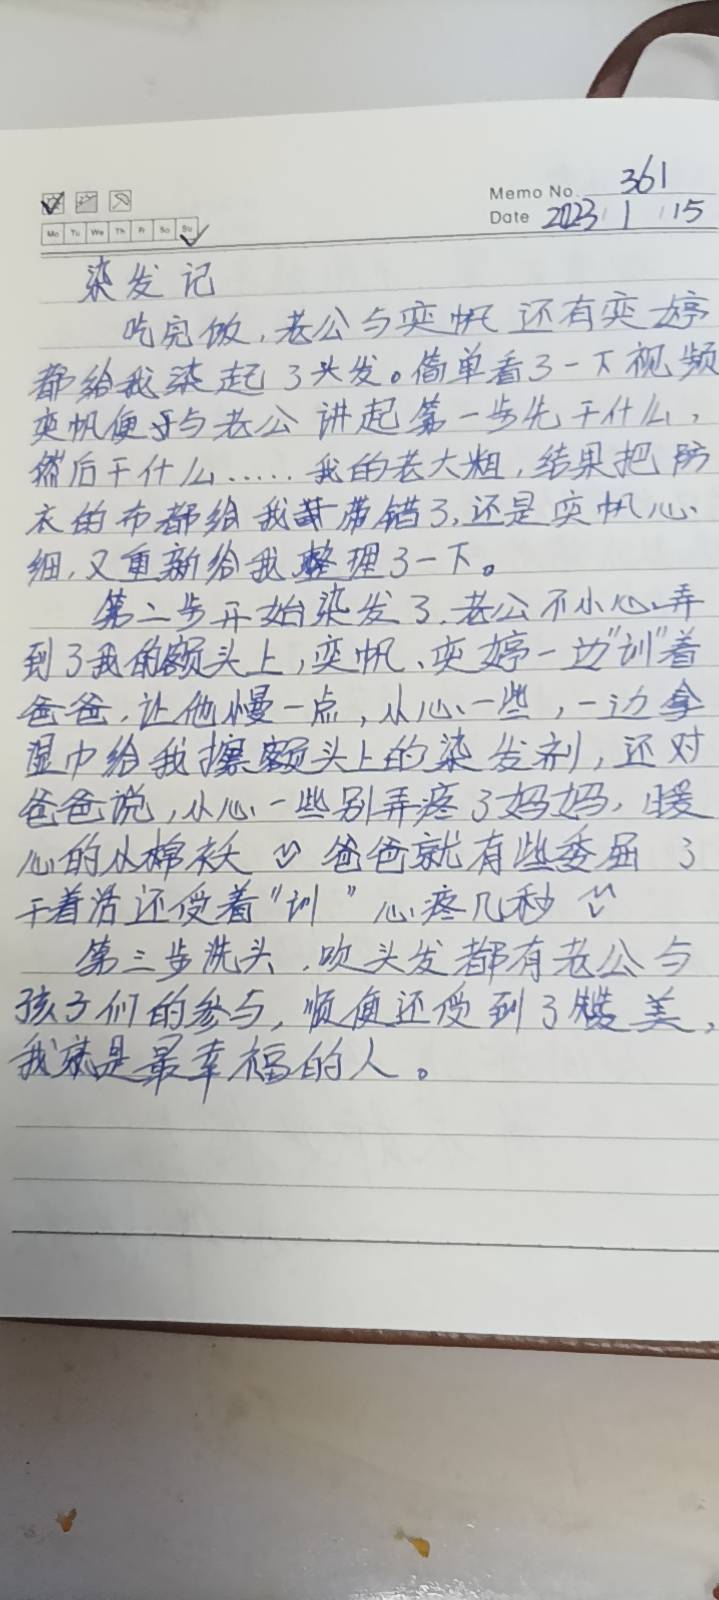 Memo No. 361
Mo Tu We Th Fr Sa Su
Date 2023 / 1 / 15
染发记
吃完饭,老公与奕帆还有奕婷
都给我染起了头发。简单看了一下视频
奕帆便与老公讲起第一步先干什么,
然后干什么……我的老大粗,结果把防
衣的布都给我带错了,还是奕帆心
细,又重新给我整理了一下。
第二步开始染发了,老公不小心弄
到了我的额头上,奕帆、奕婷一边"训"着
爸爸,让他慢一点,从心一些,一边拿
湿巾给我擦额头上的染发剂,还对
爸爸说,从心一些别弄疼了妈妈,暖
心的从棉袄 爸爸就有些委屈了
干着活还受着"训"心疼几秒
第三步洗头,吹头发都有老公与
孩子们的参与,顺便还受到了赞美,
我就是最幸福的人。